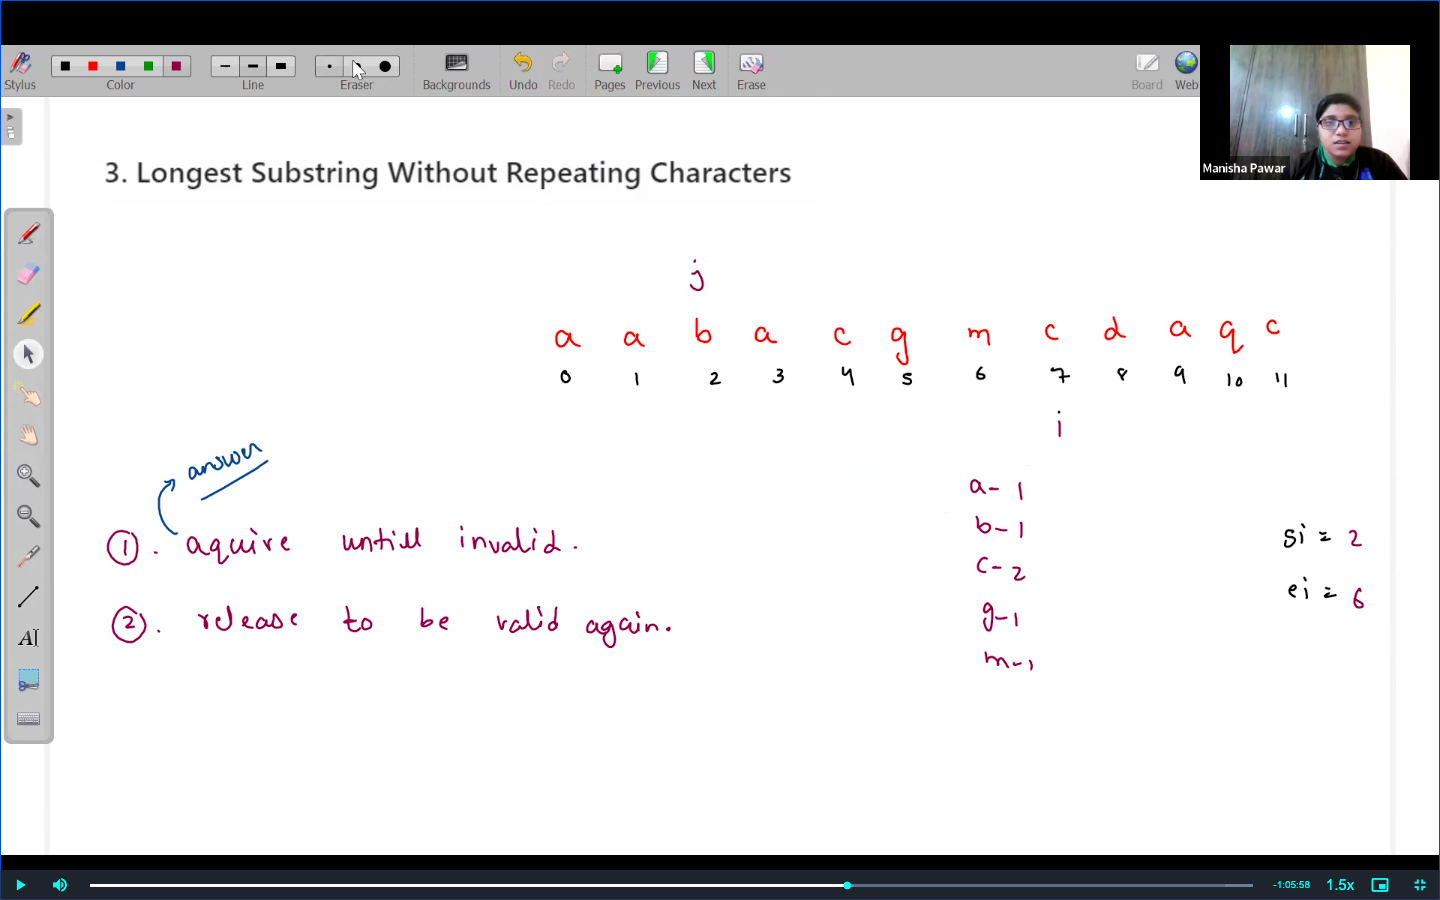 Stylus
Color
Line
Eraser
Backgrounds
Undo
Redo
Pages
Previous
Next
Erase
Board
Web
Manisha Pawar
3. Longest Substring Without Repeating Characters
j
a a b a c g m c d a q c
0 1 2 3 4 5 6 7 8 9 10 11
i
answer
1. aquire untill invalid.
2. release to be valid again.
a-1
b-1
c-2
g-1
m-1
si = 2
ei = 6
AI
-1:05:58
1.5x